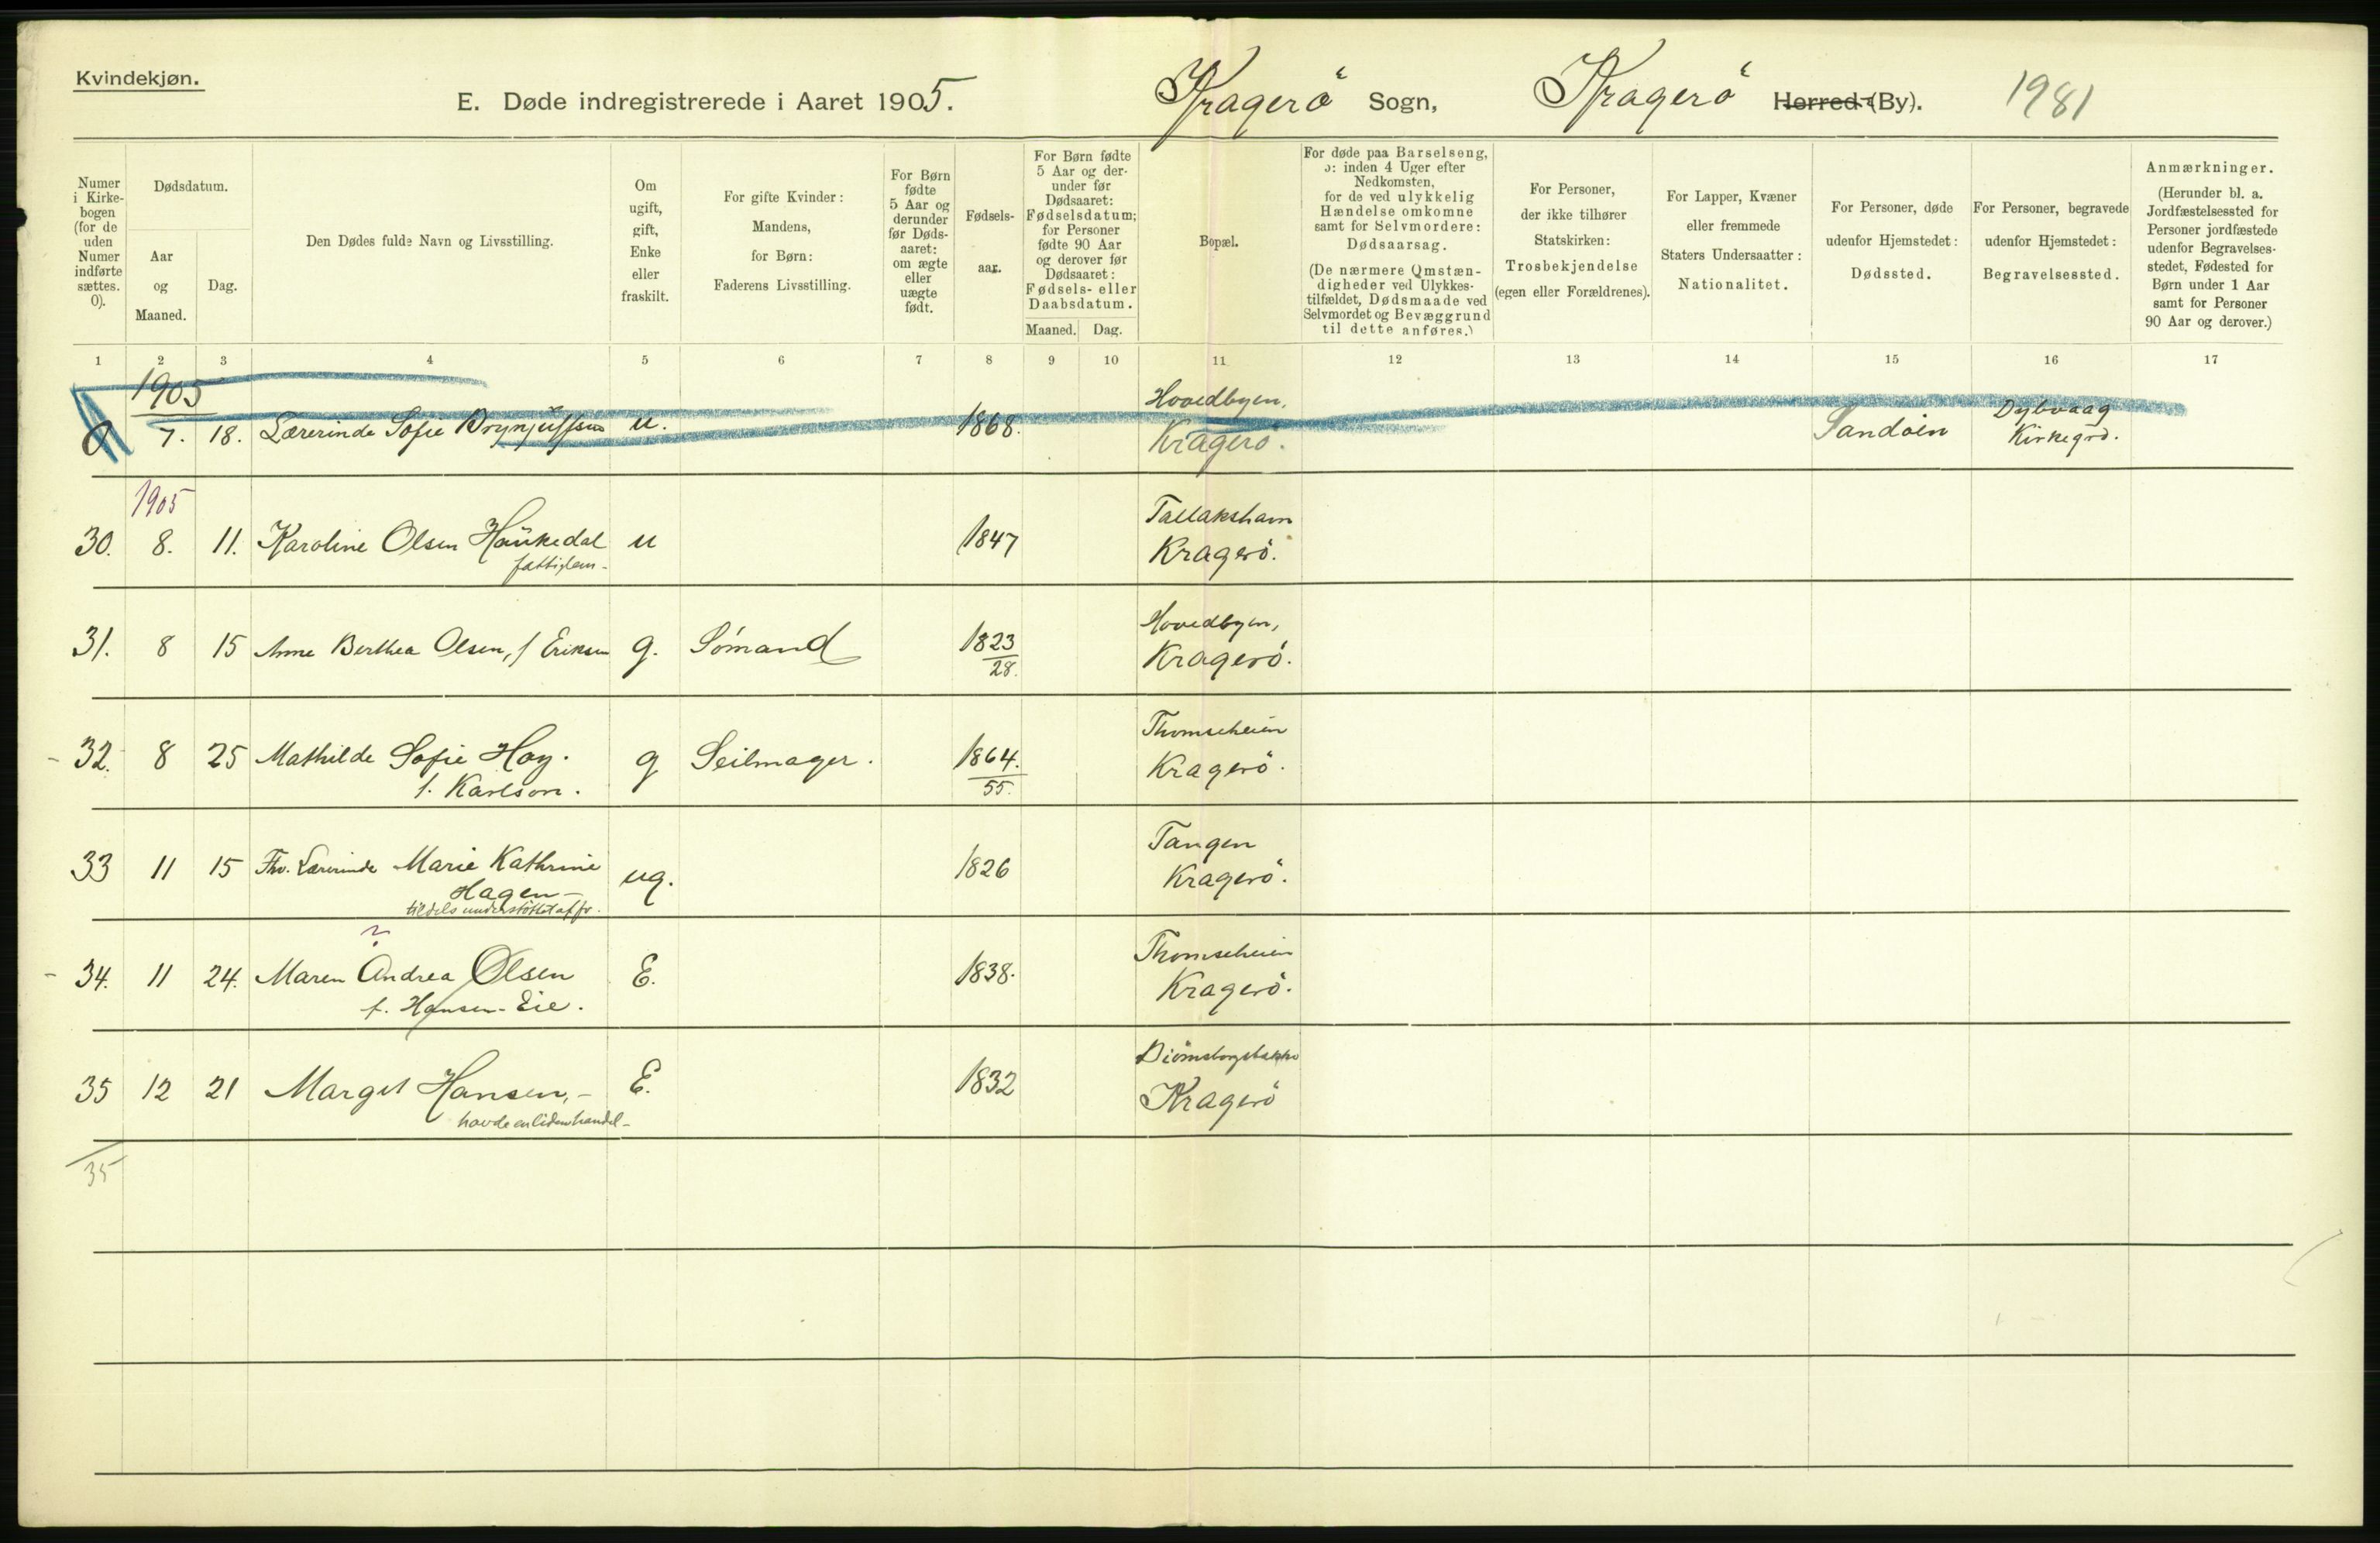 Kvindekjøn.
E. Døde indregistrerede i Aaret 1905. Kragerö Sogn, Kragerö Herred (By). 1981
Numer i Kirkebogen (for de uden Numer indførte sættes. 0).
Dødsdatum.
Aar og Maaned.
Dag.
Den Dødes fulde Navn og Livsstilling.
Om ugift, gift, Enke eller fraskilt.
For gifte Kvinder: Mandens, for Børn: Faderens Livsstilling.
For Børn fødte 5 Aar og derunder før Dødsaaret: om ægte eller uægte født.
Fødselsaar.
For Børn fødte 5 Aar og derunder før Dødsaaret: Fødselsdatum; for Personer fødte 90 Aar og derover før Dødsaaret: Fødsels- eller Daabsdatum.
Maaned. Dag.
Bopæl.
For døde paa Barselseng, ɔ: inden 4 Uger efter Nedkomsten, for de ved ulykkelig Hændelse omkomne samt for Selvmordere: Dødsaarsag.
(De nærmere Omstændigheder ved Ulykkestilfældet, Dødsmaade ved Selvmordet og Bevæggrund til dette anføres.)
For Personer, der ikke tilhører Statskirken: Trosbekjendelse (egen eller Forældrenes).
For Lapper, Kvæner eller fremmede Staters Undersaatter: Nationalitet.
For Personer, døde udenfor Hjemstedet: Dødssted.
For Personer, begravede udenfor Hjemstedet: Begravelsessted.
Anmærkninger.
(Herunder bl. a. Jordfæstelsessted for Personer jordfæstede udenfor Begravelsesstedet, Fødested for Børn under 1 Aar samt for Personer 90 Aar og derover.)
1 2 3 4 5 6 7 8 9 10 11 12 13 14 15 16 17
1905 Hovedbyen, Dybvaag
0 7. 18. Lærerinde Sofie u. 1868. Kragerö. Sandöen Kirkegrd.
1905 Tallakshavn
30. 8. 11. Karoline Olsen Haukedal u 1847 Kragerö.
fattiglem -
Hovedbyen,
31. 8 15 Anne Berthea Olsen, f Eriksen g. Sömand 1823 Kragerö.
28.
Thomseheien
32. 8 25 Mathilde Sofie Høy. g Seilmager. 1864. Kragerö.
f. Karlson. 55.
Tangen
33 11 15 Fhv. Lærerinde Marie Kathrine ug. 1826 Kragerö.
Hagen -
tildels understöttet af fv.
Thomseheien
34. 11 24. Maren Andrea Olsen E. 1838. Kragerö.
f. Hansen-Eie.
35 12 21 Margit Hansen, - E. 1832 Kragerö
havde en liden handel -
35